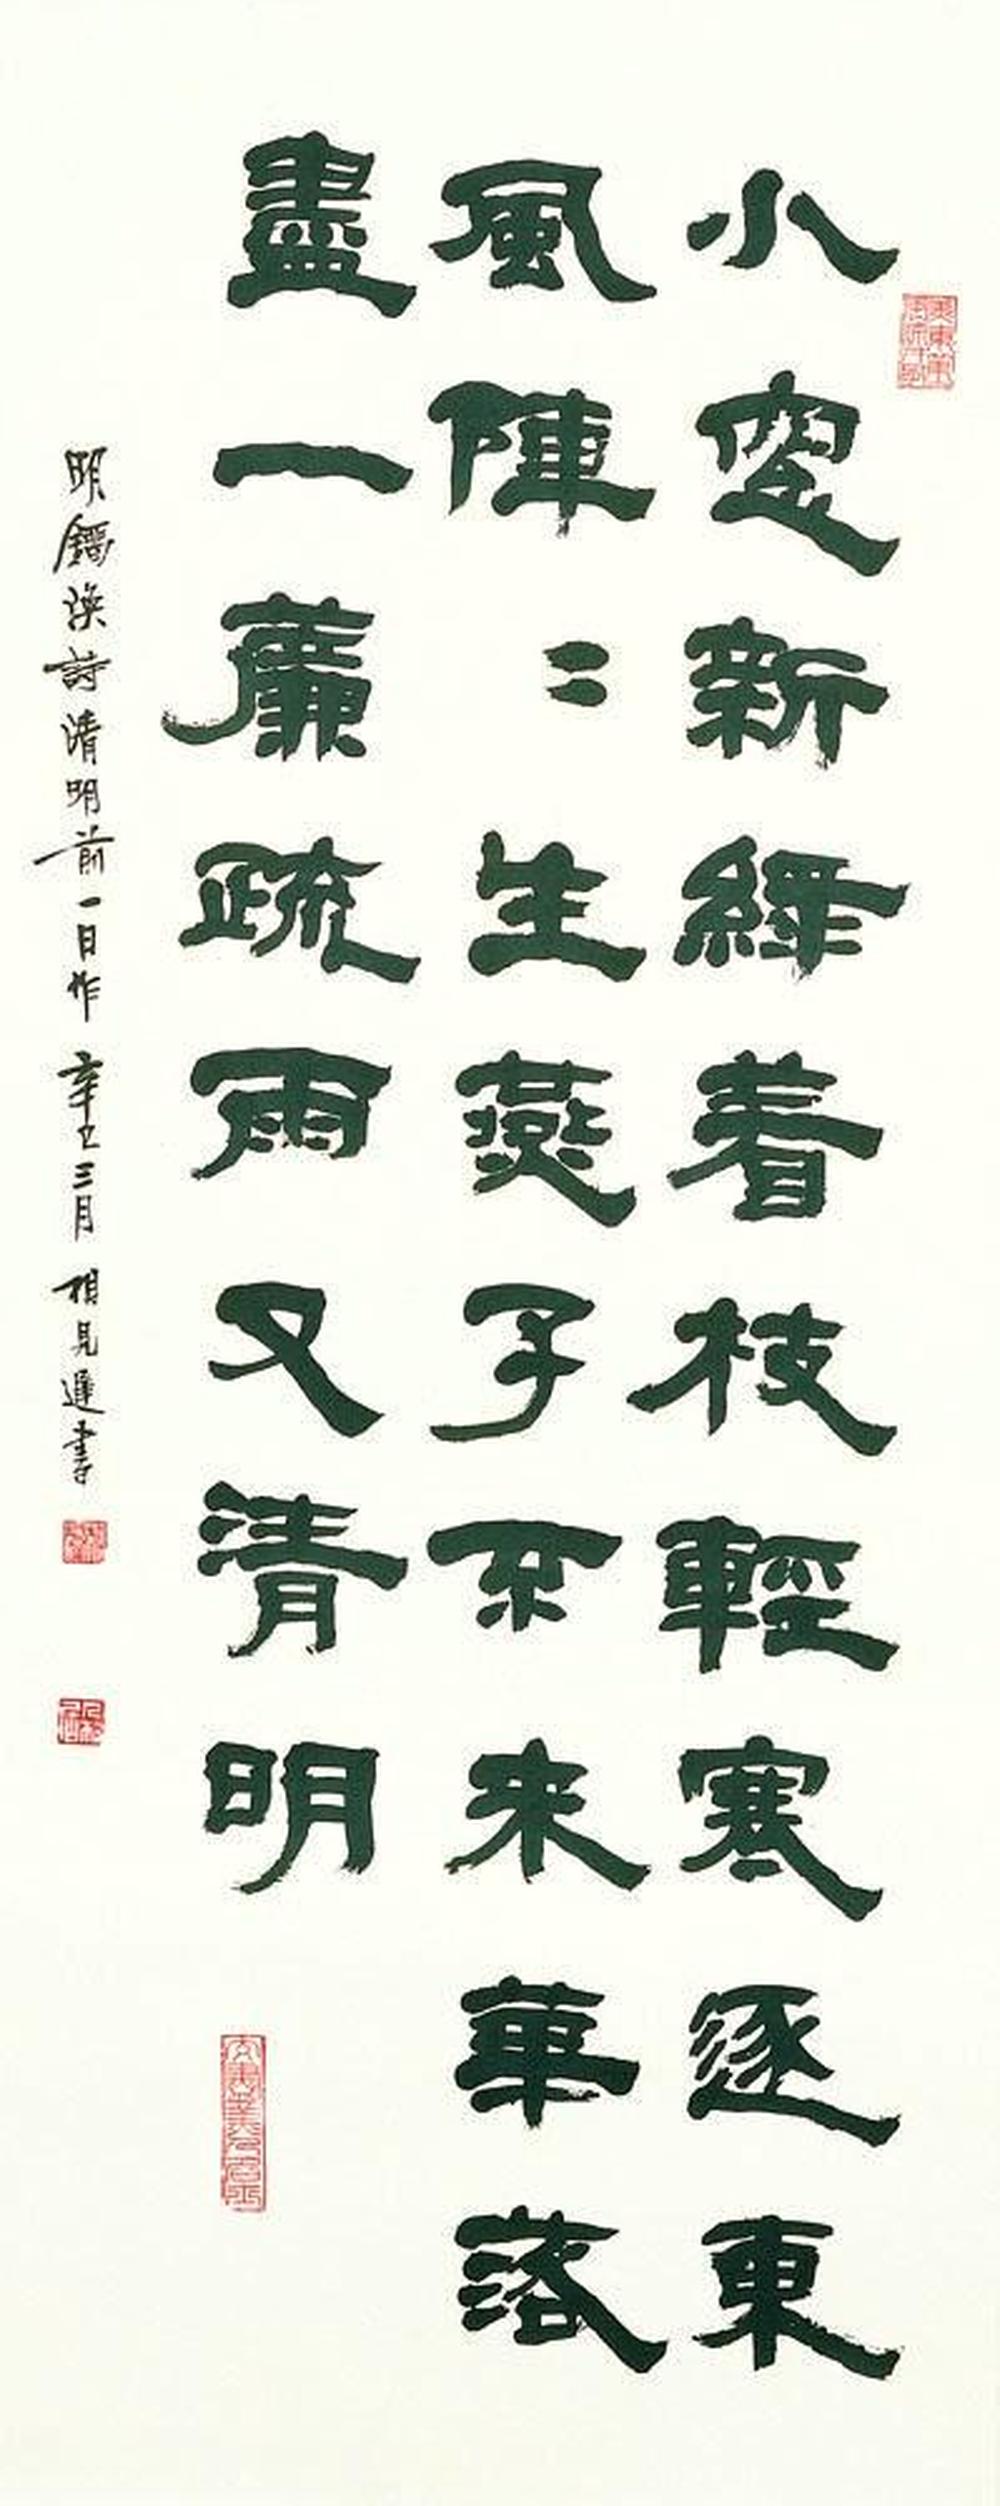 小窓新綠着枝輕寒逐東
風陣〻生燕子不來華落
盡一簾疏雨又清明
明鎦渙詩清明前一日作 辛巳三月 見遲書